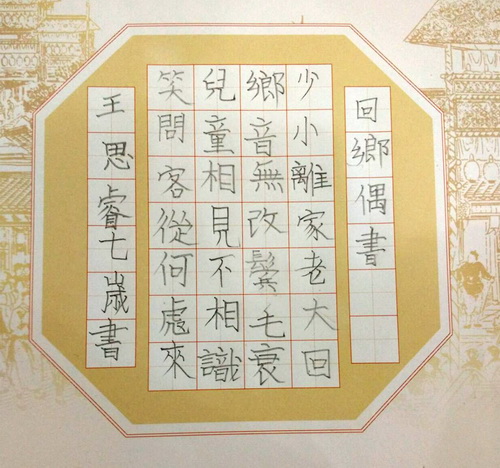 回鄉偶書
少小離家老大回
鄉音無改鬢毛衰
兒童相見不相識
笑問客從何處來
王思睿七歲書